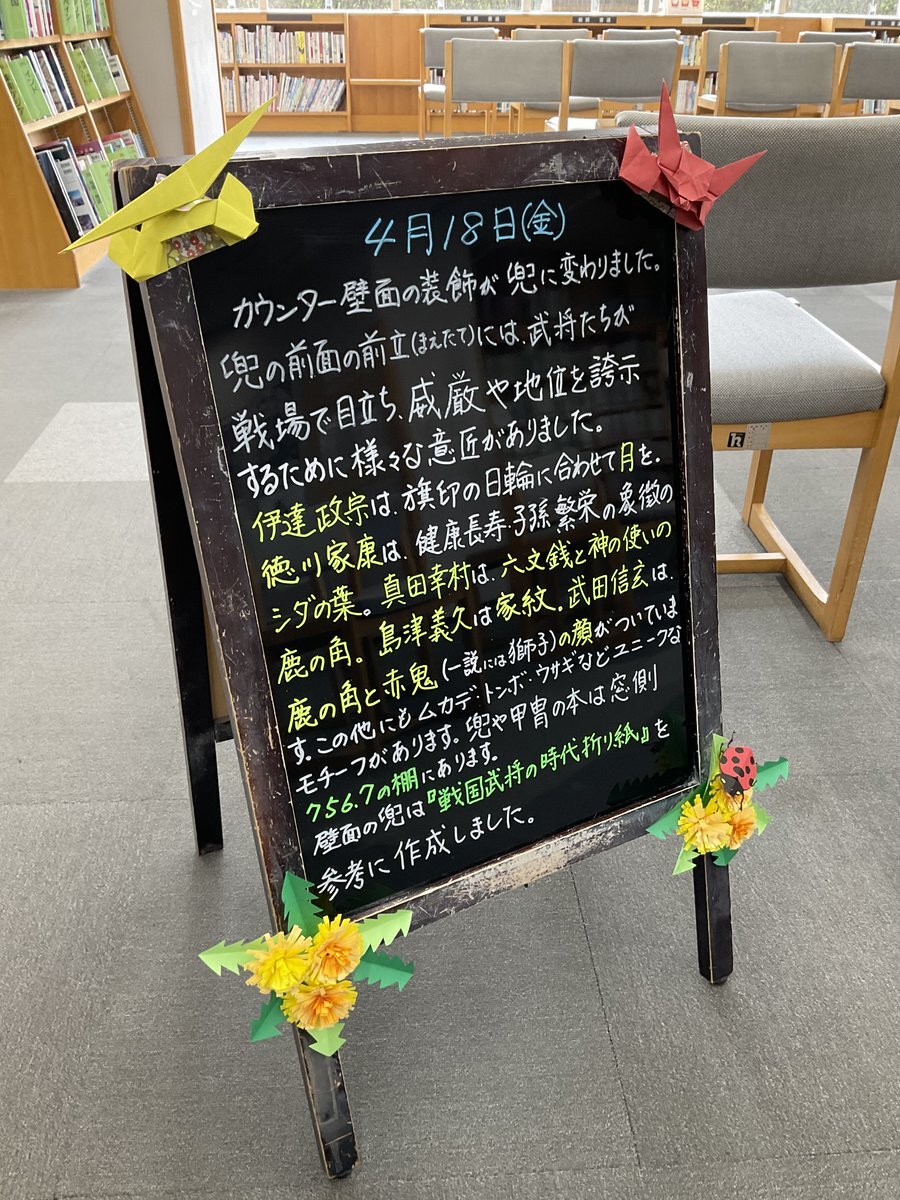 4月18日(金)
カウンター壁面の装飾が兜に変わりました。
兜の前面の前立(まえたて)には、武将たちが
戦場で目立ち、威厳や地位を誇示
するために様々な意匠がありました。
伊達政宗は、旗印の日輪に合わせて月を。
徳川家康は、健康長寿・子孫繁栄の象徴の
シダの葉。真田幸村は、六文銭と神の使いの
鹿の角。島津義久は家紋。武田信玄は、
鹿の角と赤鬼(一説には獅子)の顔がついていま
す。この他にもムカデ・トンボ・ウサギなどユニークな
モチーフがあります。兜や甲冑の本は窓側
756.7の棚にあります。
壁面の兜は『戦国武将の時代折り紙』を
参考に作成しました。